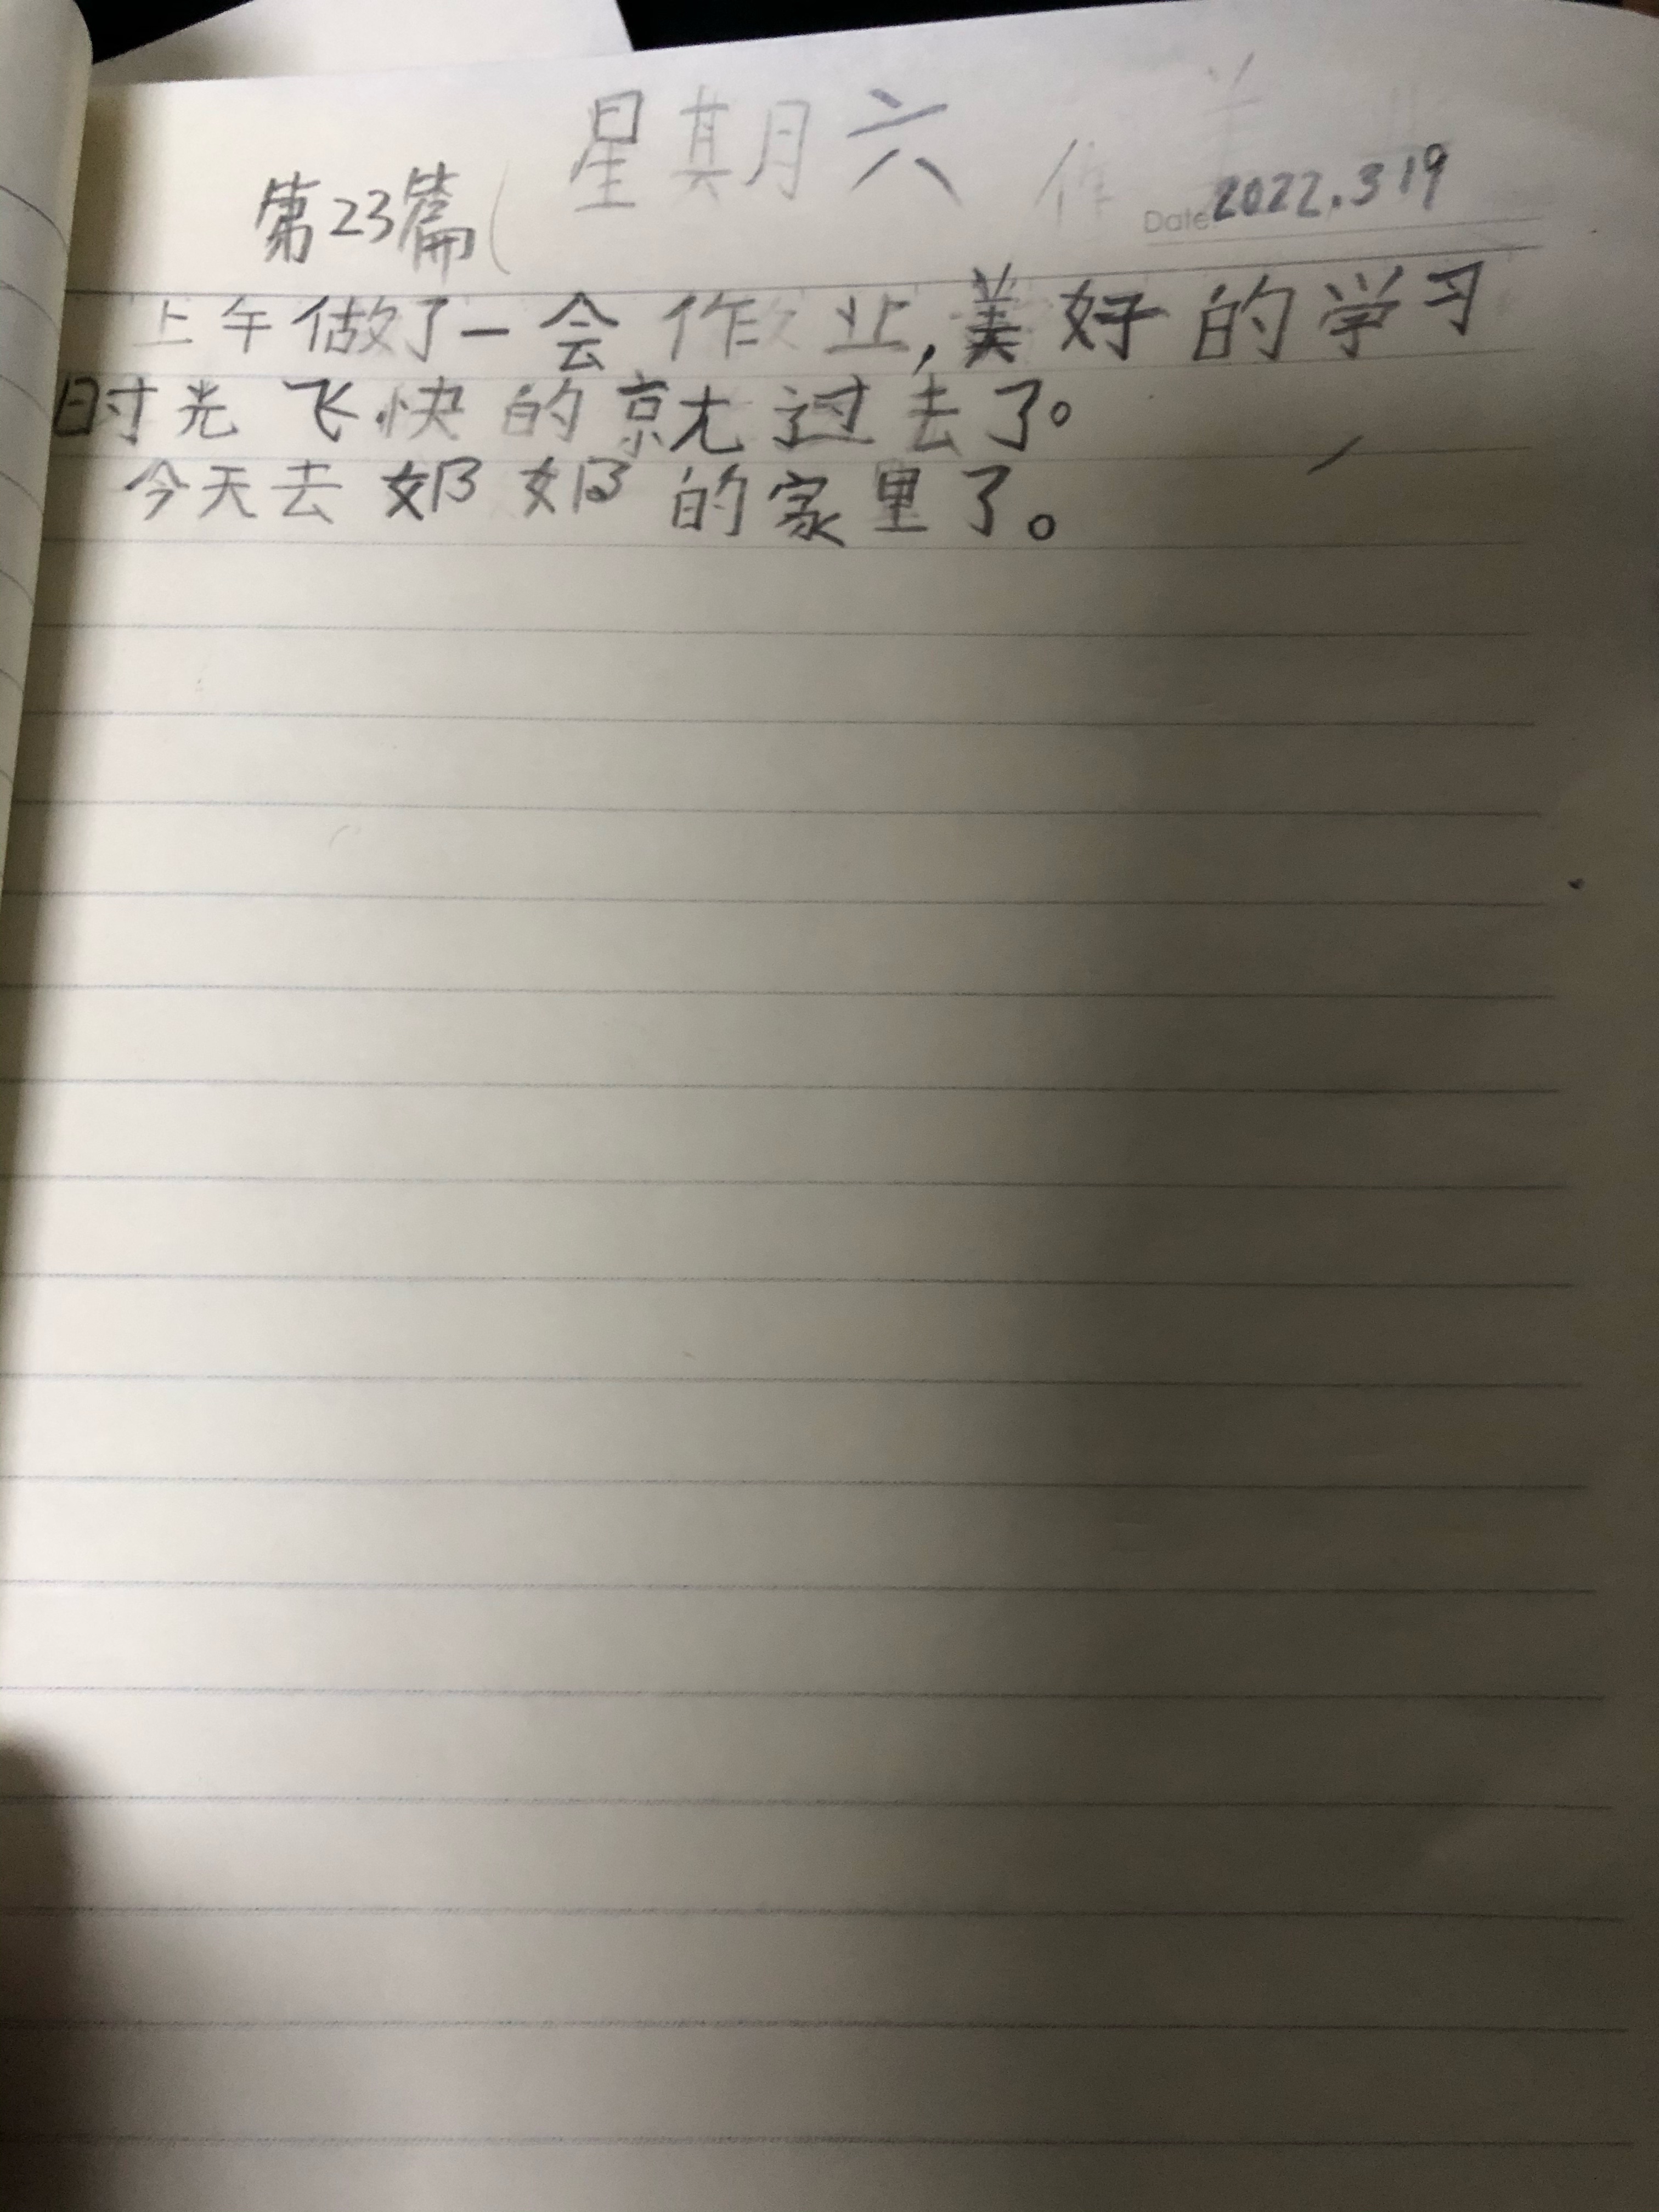 星期六
第23篇
Date 2022.3 19
上午做了一会作业,美好的学习
时光飞快的就过去了。
今天去奶奶的家里了。